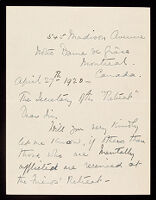 345 Madison Avenue
Notre Dame de Grâce
Montreal.
Canada.
April 27th 1920 -
The Secretary of the "Retreat"
Dear Sir,
Will you very kindly
let me know, if others than
those who are mentally
afflicted are received at
the Friends' Retreat -